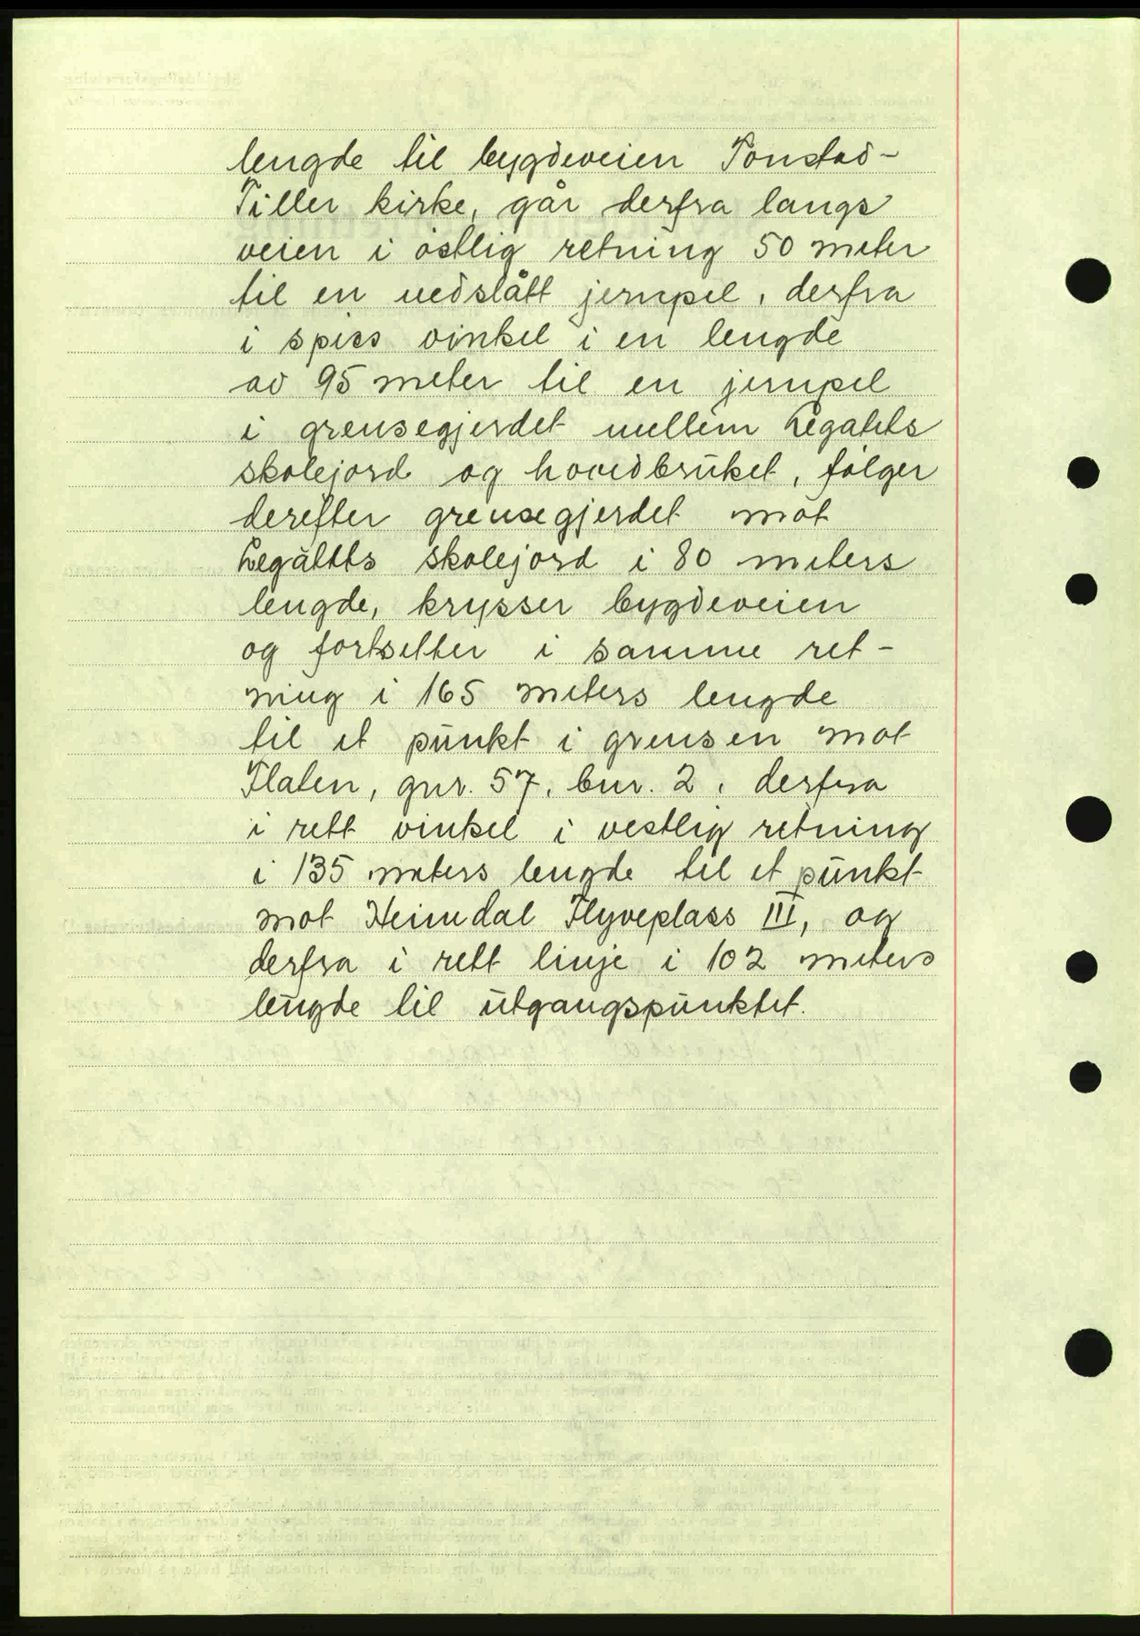 lengde til bygdeveien Tonstad-
Tiller kirke, går derfra langs
veien i østlig retning 50 meter
til en nedslått jernpel, derfra
i spiss vinkel i en lengde
av 95 meter til en jernpel
i grensegjerdet mellem Legatets
skolejord og hovedbruket, følger
derefter grensegjerdet mot
Legatets skolejord i 80 meters
lengde, krysser bygdeveien
og fortsetter i samme ret-
ning i 165 meters lengde
til et punkt i grensen mot
Flaten, gnr. 57, bnr. 2, derfra
i rett vinkel i vestlig retning
i 135 meters lengde til et punkt
mot Heimdal Flyveplass III, og
derfra i rett linje i 102 meters
lengde til utgangspunktet.